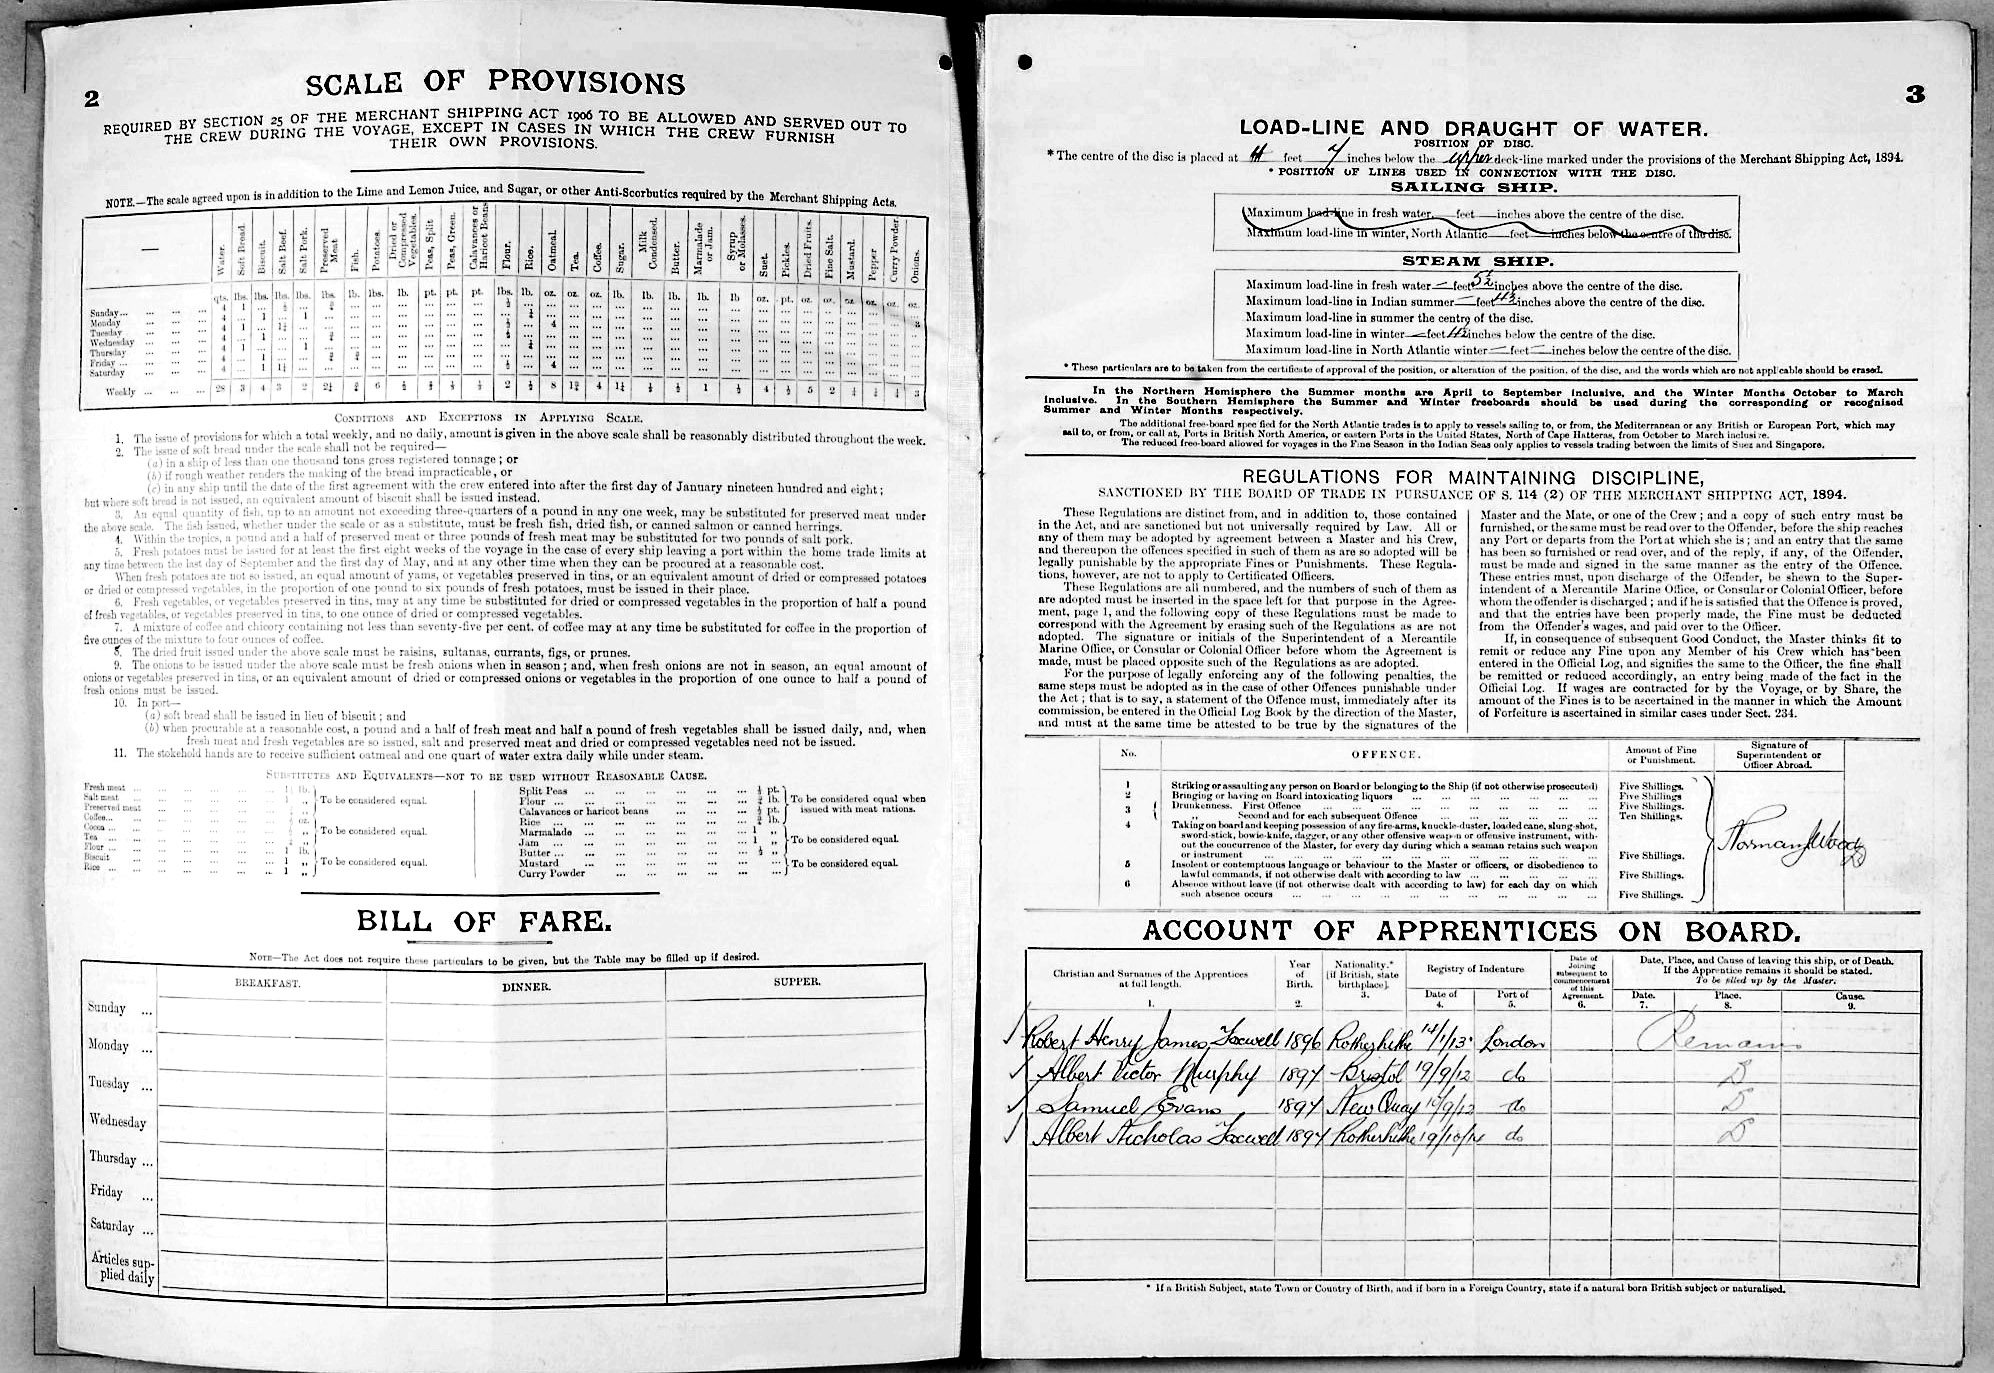 2
SCALE OF PROVISIONS
REQUIRED BY SECTION 25 OF THE MERCHANT SHIPPING ACT 1906 TO BE ALLOWED AND SERVED OUT TO
THE CREW DURING THE VOYAGE, EXCEPT IN CASES IN WHICH THE CREW FURNISH
THEIR OWN PROVISIONS.
NOTE.—The scale agreed upon is in addition to the Lime and Lemon Juice, and Sugar, or other Anti-Scorbutics required by the Merchant Shipping Acts.
— Water. Soft Bread. Biscuit. Salt Beef. Salt Pork. Preserved Meat Fish. Potatoes. Dried or Compressed Vegetables. Peas, Split Peas, Green. Calavances or Haricot Beans Flour. Rice. Oatmeal. Tea. Coffee. Sugar. Milk Condensed. Butter. Marmalade or Jam. Syrup or Molasses. Suet. Pickles. Dried Fruits. Fine Salt. Mustard. Pepper Curry Powder. Onions.
qts. lbs. lbs. lbs. lbs. lbs. lb. lbs. lb. pt. pt. pt. lbs. lb. oz. oz. oz. lb. lb. lb. lb. lb oz. pt. oz. oz. oz oz. oz. oz.
Sunday...
Monday
Tuesday
Wednesday
Thursday
Friday ...
Saturday
Weekly ... 28 3 4 3 2
CONDITIONS AND EXCEPTIONS IN APPLYING SCALE.
1. The issue of provisions for which a total weekly, and no daily, amount is given in the above scale shall be reasonably distributed throughout the week.
2. The issue of soft bread under the scale shall not be required—
(a) in a ship of less than one thousand tons gross registered tonnage; or
(b) if rough weather renders the making of the bread impracticable, or
(c) in any ship until the date of the first agreement with the crew entered into after the first day of January nineteen hundred and eight;
but where soft bread is not issued, an equivalent amount of biscuit shall be issued instead.
3. An equal quantity of fish, up to an amount not exceeding three-quarters of a pound in any one week, may be substituted for preserved meat under
the above scale. The fish issued, whether under the scale or as a substitute, must be fresh fish, dried fish, or canned salmon or canned herrings.
4. Within the tropics, a pound and a half of preserved meat or three pounds of fresh meat may be substituted for two pounds of salt pork.
5. Fresh potatoes must be issued for at least the first eight weeks of the voyage in the case of every ship leaving a port within the home trade limits at
any time between the last day of September and the first day of May, and at any other time when they can be procured at a reasonable cost.
When fresh potatoes are not so issued, an equal amount of yams, or vegetables preserved in tins, or an equivalent amount of dried or compressed potatoes
or dried or compressed vegetables, in the proportion of one pound to six pounds of fresh potatoes, must be issued in their place.
6. Fresh vegetables, or vegetables preserved in tins, may at any time be substituted for dried or compressed vegetables in the proportion of half a pound
of fresh vegetables, or vegetables preserved in tins, to one ounce of dried or compressed vegetables.
7. A mixture of coffee and chicory containing not less than seventy-five per cent. of coffee may at any time be substituted for coffee in the proportion of
five ounces of the mixture to four ounces of coffee.
8. The dried fruit issued under the above scale must be raisins, sultanas, currants, figs, or prunes.
9. The onions to be issued under the above scale must be fresh onions when in season; and, when fresh onions are not in season, an equal amount of
onions or vegetables preserved in tins, or an equivalent amount of dried or compressed onions or vegetables in the proportion of one ounce to half a pound of
fresh onions must be issued.
10. In port—
(a) soft bread shall be issued in lieu of biscuit; and
(b) when procurable at a reasonable cost, a pound and a half of fresh meat and half a pound of fresh vegetables shall be issued daily, and, when
fresh meat and fresh vegetables are so issued, salt and preserved meat and dried or compressed vegetables need not be issued.
11. The stokehold hands are to receive sufficient oatmeal and one quart of water extra daily while under steam.
SUBSTITUTES AND EQUIVALENTS—NOT TO BE USED WITHOUT REASONABLE CAUSE.
Fresh meat ...
Salt meat ...
Preserved meat ...
To be considered equal.
Coffee...
Cocoa ...
Tea ...
To be considered equal.
Flour ...
Biscuit ...
Rice ...
To be considered equal.
Split Peas ...
Flour ...
Calavances or haricot beans ...
Rice ...
To be considered equal when issued with meat rations.
Marmalade ...
Jam ...
Butter ...
To be considered equal.
Mustard ...
Curry Powder ...
To be considered equal.
BILL OF FARE.
NOTE—The Act does not require these particulars to be given, but the Table may be filled up if desired.
BREAKFAST. DINNER. SUPPER.
Sunday ...
Monday ...
Tuesday ...
Wednesday
Thursday ...
Friday ...
Saturday ...
Articles sup-
plied daily
3
LOAD-LINE AND DRAUGHT OF WATER.
POSITION OF DISC.
* The centre of the disc is placed at feet 7 inches below the upper deck-line marked under the provisions of the Merchant Shipping Act, 1894.
* POSITION OF LINES USED IN CONNECTION WITH THE DISC.
SAILING SHIP.
Maximum load-line in fresh water, feet inches above the centre of the disc.
Maximum load-line in winter, North Atlantic feet inches below the centre of the disc.
STEAM SHIP.
Maximum load-line in fresh water — feet 5½ inches above the centre of the disc.
Maximum load-line in Indian summer — feet 4½ inches above the centre of the disc.
Maximum load-line in summer the centre of the disc.
Maximum load-line in winter — feet 4½ inches below the centre of the disc.
Maximum load-line in North Atlantic winter — feet — inches below the centre of the disc.
* These particulars are to be taken from the certificate of approval of the position, or alteration of the position, of the disc, and the words which are not applicable should be erased.
In the Northern Hemisphere the Summer months are April to September inclusive, and the Winter Months October to March
inclusive. In the Southern Hemisphere the Summer and Winter freeboards should be used during the corresponding or recognised
Summer and Winter Months respectively.
The additional free-board specified for the North Atlantic trades is to apply to vessels sailing to, or from, the Mediterranean or any British or European Port, which may
sail to, or from, or call at, Ports in British North America, or eastern Ports in the United States, North of Cape Hatteras, from October to March inclusive.
The reduced free-board allowed for voyages in the Fine Season in the Indian Seas only applies to vessels trading between the limits of Suez and Singapore.
REGULATIONS FOR MAINTAINING DISCIPLINE,
SANCTIONED BY THE BOARD OF TRADE IN PURSUANCE OF S. 114 (2) OF THE MERCHANT SHIPPING ACT, 1894.
These Regulations are distinct from, and in addition to, those contained
in the Act, and are sanctioned but not universally required by Law. All or
any of them may be adopted by agreement between a Master and his Crew,
and thereupon the offences specified in such of them as are so adopted will be
legally punishable by the appropriate Fines or Punishments. These Regula-
tions, however, are not to apply to Certificated Officers.
These Regulations are all numbered, and the numbers of such of them as
are adopted must be inserted in the space left for that purpose in the Agree-
ment, page 1, and the following copy of these Regulations must be made to
correspond with the Agreement by erasing such of the Regulations as are not
adopted. The signature or initials of the Superintendent of a Mercantile
Marine Office, or Consular or Colonial Officer before whom the Agreement is
made, must be placed opposite such of the Regulations as are adopted.
For the purpose of legally enforcing any of the following penalties, the
same steps must be adopted as in the case of other Offences punishable under
the Act; that is to say, a statement of the Offence must, immediately after its
commission, be entered in the Official Log Book by the direction of the Master,
and must at the same time be attested to be true by the signatures of the
Master and the Mate, or one of the Crew; and a copy of such entry must be
furnished, or the same must be read over to the Offender, before the ship reaches
any Port or departs from the Port at which she is; and an entry that the same
has been so furnished or read over, and of the reply, if any, of the Offender,
must be made and signed in the same manner as the entry of the Offence.
These entries must, upon discharge of the Offender, be shewn to the Super-
intendent of a Mercantile Marine Office, or Consular or Colonial Officer, before
whom the offender is discharged; and if he is satisfied that the Offence is proved,
and that the entries have been properly made, the Fine must be deducted
from the Offender's wages, and paid over to the Officer.
If, in consequence of subsequent Good Conduct, the Master thinks fit to
remit or reduce any Fine upon any Member of his Crew which has been
entered in the Official Log, and signifies the same to the Officer, the fine shall
be remitted or reduced accordingly, an entry being made of the fact in the
Official Log. If wages are contracted for by the Voyage, or by Share, the
amount of the Fines is to be ascertained in the manner in which the Amount
of Forfeiture is ascertained in similar cases under Sect. 234.
No. OFFENCE. Amount of Fine or Punishment. Signature of Superintendent or Officer Abroad.
1 Striking or assaulting any person on Board or belonging to the Ship (if not otherwise prosecuted) Five Shillings.
2 Bringing or having on Board intoxicating liquors ... Five Shillings.
3 Drunkenness. First Offence ... Five Shillings.
„ Second and for each subsequent Offence ... Ten Shillings.
4 Taking on board and keeping possession of any fire-arms, knuckle-duster, loaded cane, slung-shot,
sword-stick, bowie-knife, dagger, or any other offensive weapon or offensive instrument, with-
out the concurrence of the Master, for every day during which a seaman retains such weapon
or instrument ... Five Shillings.
5 Insolent or contemptuous language or behaviour to the Master or officers, or disobedience to
lawful commands, if not otherwise dealt with according to law ... Five Shillings.
6 Absence without leave (if not otherwise dealt with according to law) for each day on which
such absence occurs ... Five Shillings.
Norman Wood
ACCOUNT OF APPRENTICES ON BOARD.
Christian and Surnames of the Apprentices at full length. 1. Year of Birth. 2. Nationality.* [if British, state birthplace]. 3. Registry of Indenture Date of 4. Port of 5. Date of Joining subsequent to commencement of this Agreement. 6. Date, Place, and Cause of leaving this ship, or of Death. If the Apprentice remains it should be stated. To be filled up by the Master. Date. 7. Place. 8. Cause. 9.
Robert Henry James Foxwell 1896 Rotherhithe 14/1/13 London Remains
Albert Victor Murphy 1897 Bristol 19/9/12 do D
Samuel Evans 1897 New Quay do D
Albert Nicholas Foxwell 1897 Rotherhithe do D
* If a British Subject, state Town or Country of Birth, and if born in a Foreign Country, state if a natural born British subject or naturalised.